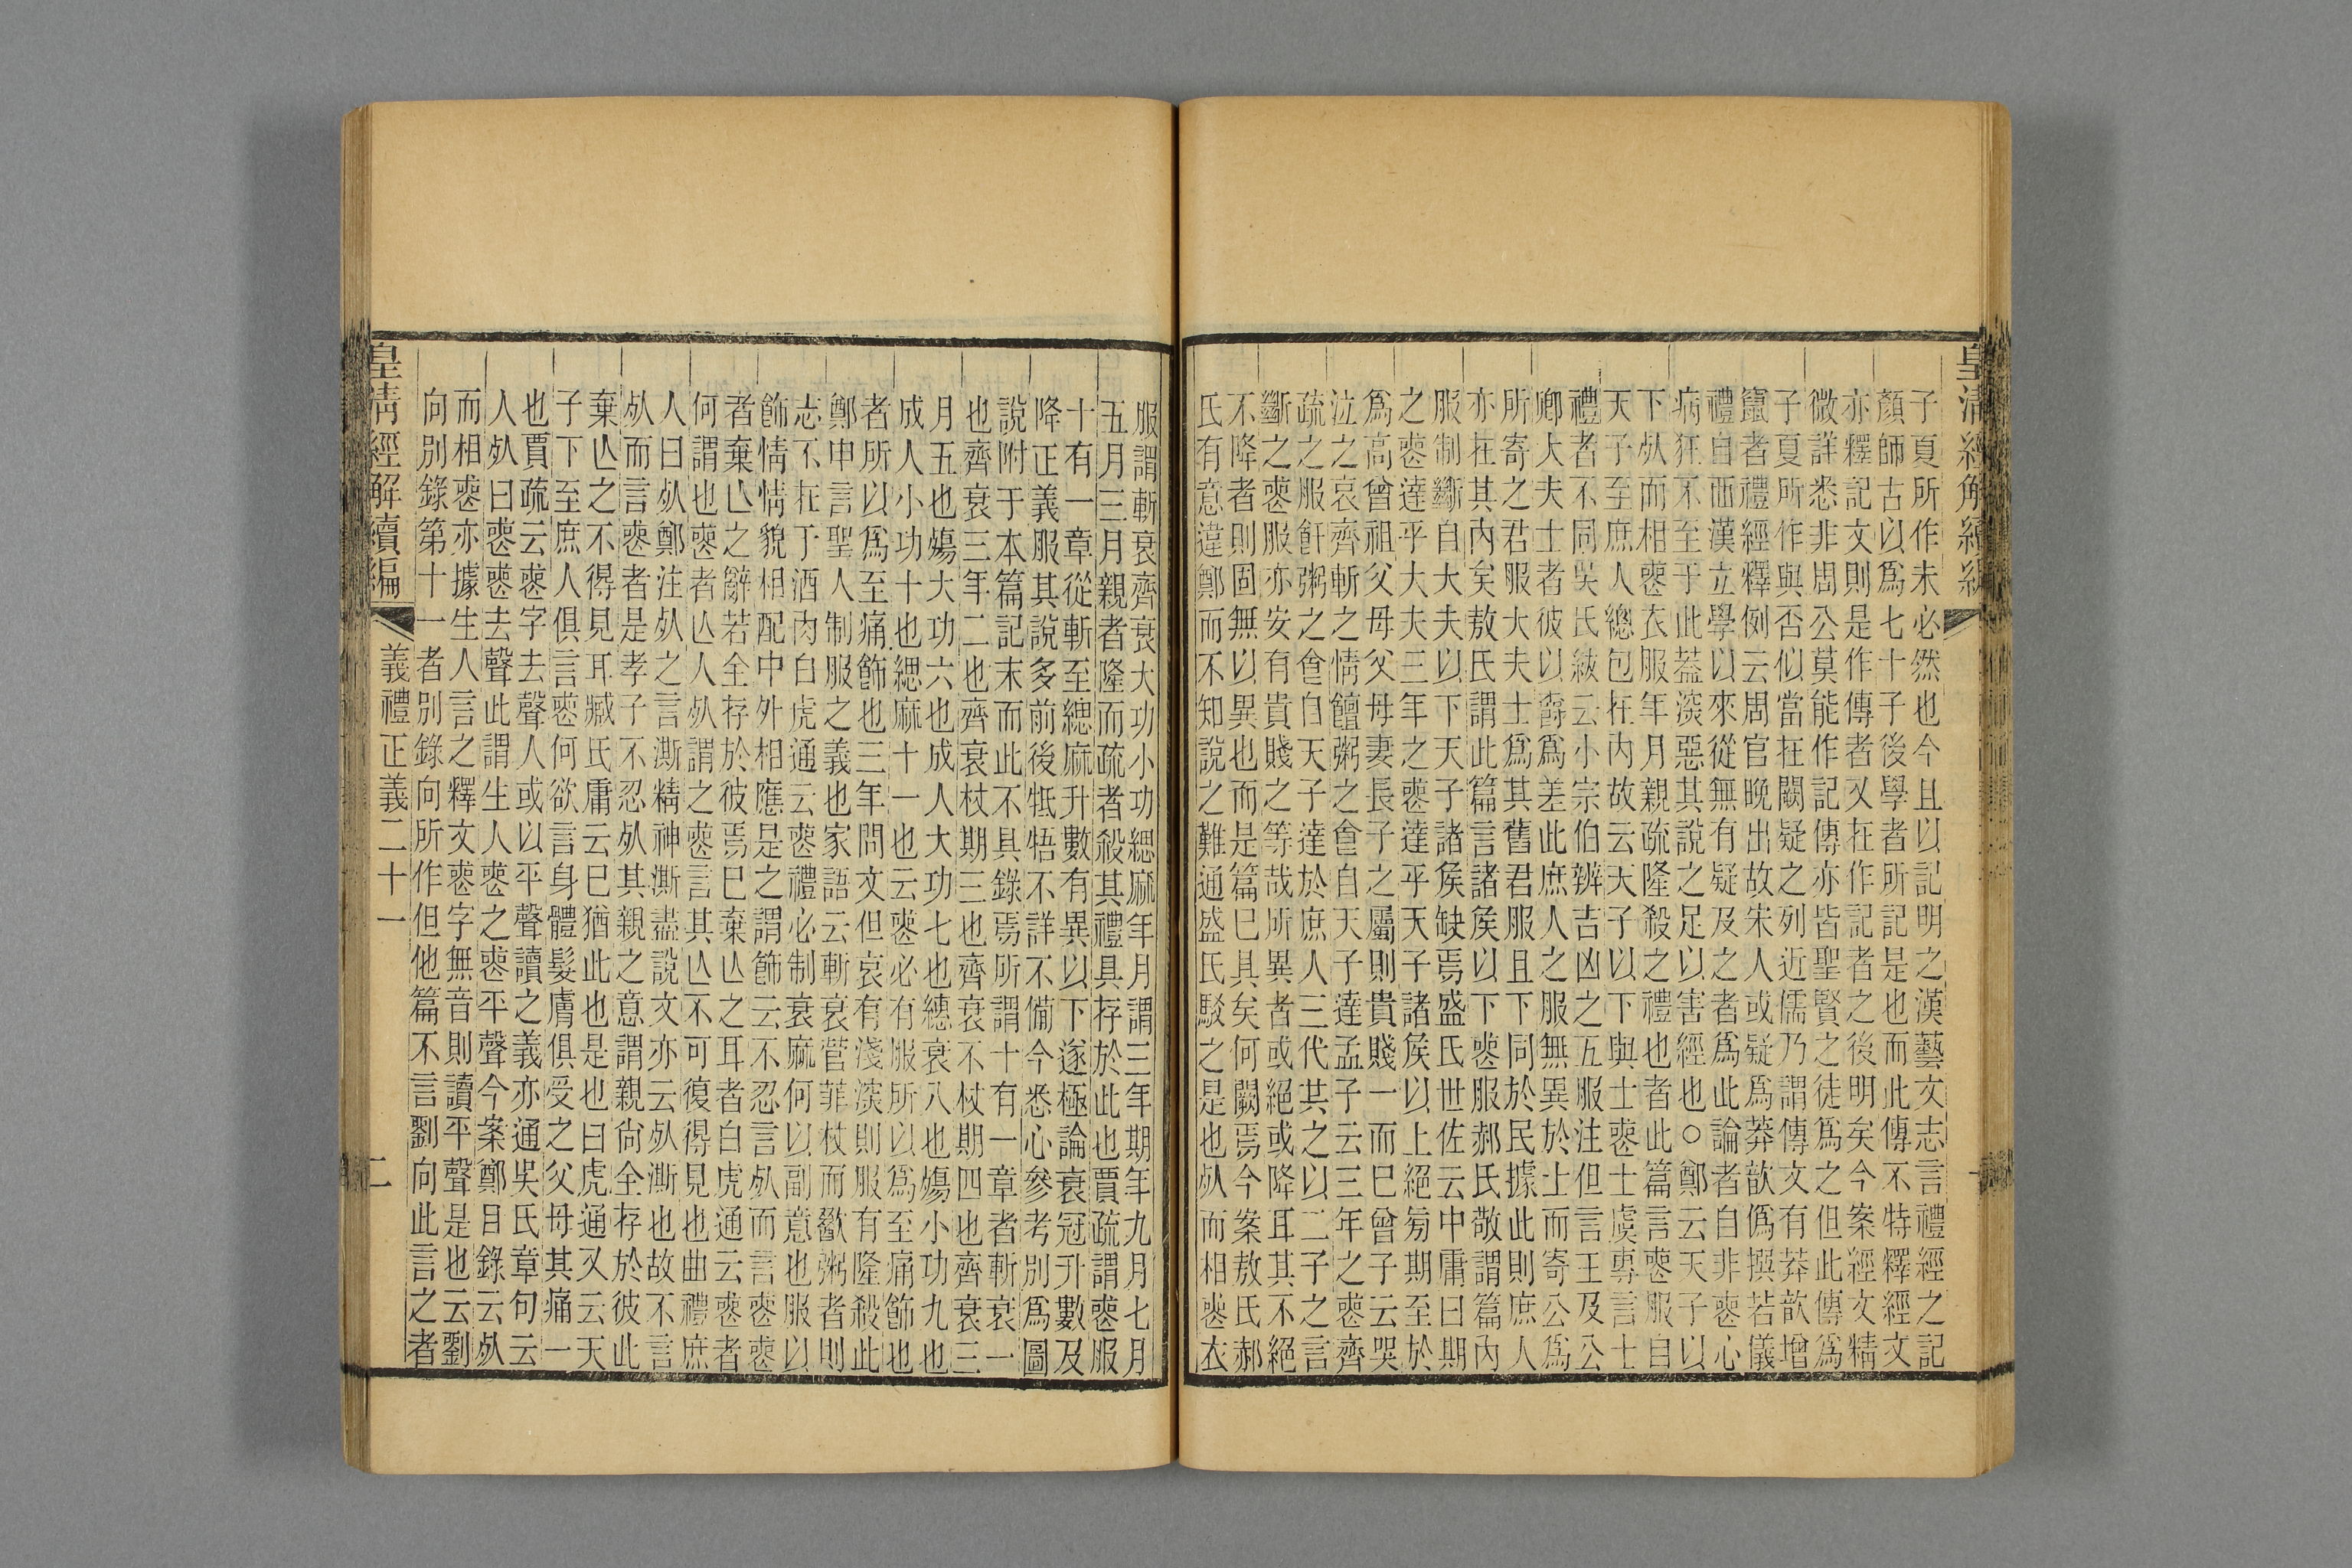 皇清經解續編
子夏所作未必然也今且以記明之漢藝文志言禮經之記
顏師古以爲七十子後學者所記是也而此傳不特釋經文
亦釋記文則是作傳者又在作記者之後明矣今案經文精
微詳悉非周公莫能作記傳亦皆聖賢之徒爲之但此傳爲
子夏所作與否似當在闕疑之列近儒乃謂傳文有莽歆增
竄者禮經釋例云周官晚出故宋人或疑爲莽歆僞撰若儀
禮自西漢立學以來從無有疑及之者爲此論者自非喪心
病狂不至于此葢深惡其說之足以害經也○鄭云天子以
下㱙而相喪衣服年月親疏隆殺之禮也者此篇言喪服自
天子至庶人總包在內故云天子以下與士喪士虞專言士
禮者不同吳氏紱云小宗伯辨吉凶之五服注但言王及公
卿大夫士者彼以爵爲差此庶人之服無異於士而寄公爲
所寄之君服大夫士爲其舊君服且下同於民據此則庶人
亦在其內矣敖氏謂此篇言諸侯以下喪服郝氏敬謂篇內
服制斷自大夫以下天子諸侯缺焉盛氏世佐云中庸曰期
之喪達乎大夫三年之喪達乎天子諸侯以上絕旁期至於
爲高曾祖父母父母妻長子之屬則貴賤一而已曾子云哭
泣之哀齊斬之情饘粥之食自天子達孟子云三年之喪齊
疏之服飦粥之食自天子達於庶人三代共之以二子之言
斷之喪服亦安有貴賤之等哉所異者或絕或降耳其不絕
不降者則固無以異也而是篇已具矣何闕焉今案敖氏郝
氏有意違鄭而不知說之難通盛氏駁之是也㱙而相喪衣
服謂斬衰齊衰大功小功緦麻年月謂三年期年九月七月
五月三月親者隆而疏者殺其禮具存於此也賈疏謂喪服
十有一章從斬至緦麻升數有異以下遂極論衰冠升數及
降正義服其說多前後牴牾不詳不備今悉心參考別爲圖
說附于本篇記末而此不具錄焉所謂十有一章者斬衰一
也齊衰三年二也齊衰杖期三也齊衰不杖期四也齊衰三
月五也殤大功六也成人大功七也繐衰八也殤小功九也
成人小功十也緦麻十一也云喪必有服所以爲至痛飾也
者所以爲至痛飾也三年問文但哀有淺深則服有隆殺此
鄭申言聖人制服之義也家語云斬衰菅菲杖而歠粥者則
志不在于酒肉白虎通云喪禮必制衰麻何以副意也服以
飾情情貌相配中外相應是之謂飾云不忍言㱙而言喪喪
者棄亾之辭若全存於彼焉已棄亾之耳者白虎通云喪者
何謂也喪者亾人㱙謂之喪言其亾不可復得見也曲禮庶
人曰㱙鄭注㱙之言澌精神澌盡說文亦云㱙澌也故不言
㱙而言喪者是孝子不忍㱙其親之意謂親尙全存於彼此
棄亾之不得見耳臧氏庸云已猶此也是也白虎通又云天
子下至庶人俱言喪何欲言身體髮膚俱受之父母其痛一
也賈疏云喪字去聲人或以平聲讀之義亦通吳氏章句云
人㱙曰喪喪去聲此謂生人喪之喪平聲今案鄭目錄云㱙
而相喪亦據生人言之釋文喪字無音則讀平聲是也云劉
向別錄第十一者別錄向所作但他篇不言劉向此言之者
皇清經解續編　義禮正義二十一　二